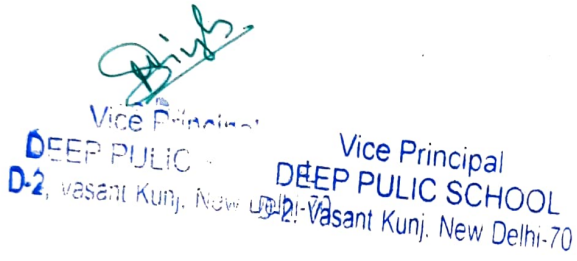 Vice Principal
DEEP PULIC
D-2, Vasant Kunj, New Delhi-70
Vice Principal
DEEP PULIC SCHOOL
D-2, Vasant Kunj. New Delhi-70